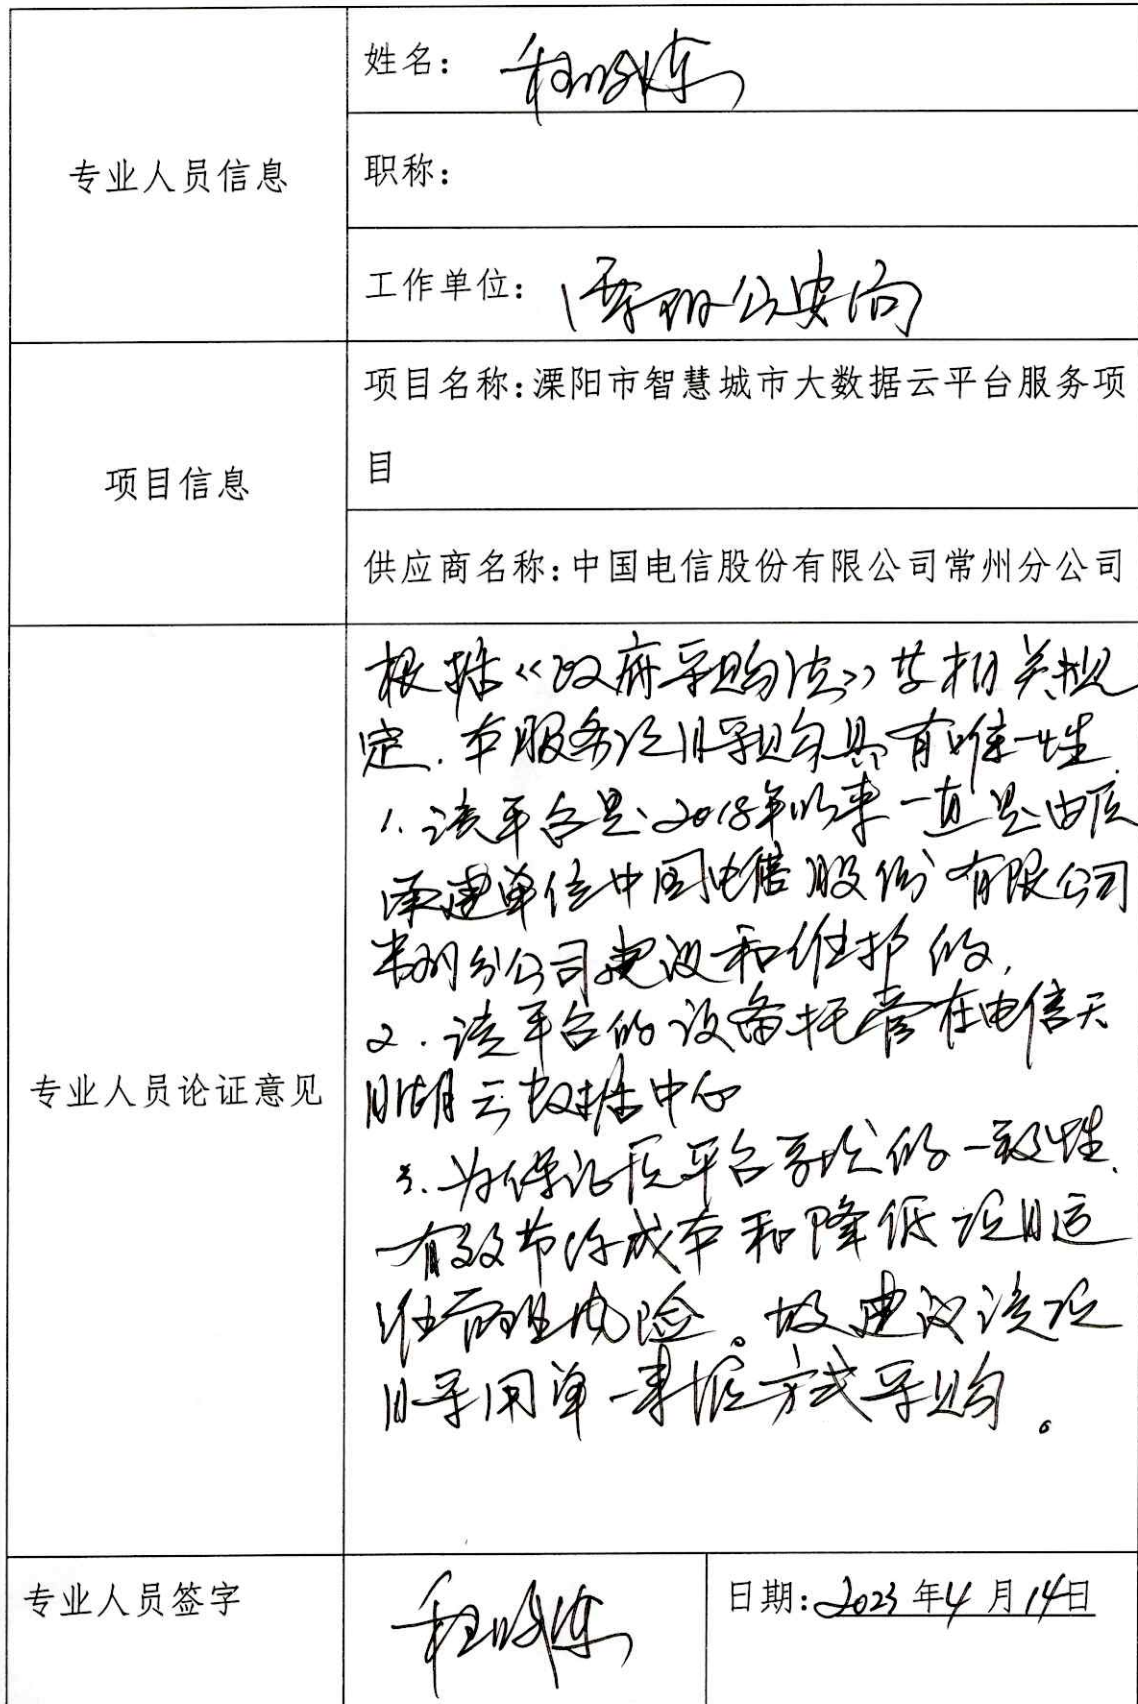 专业人员信息
姓名：程明
职称：
工作单位：溧阳公安局
项目信息
项目名称：溧阳市智慧城市大数据云平台服务项
目
供应商名称：中国电信股份有限公司常州分公司
专业人员论证意见
根据《政府采购法》等相关规
定，本服务项目采购具有唯一性
1. 该平台是2018年以来一直是由原
承建单位中国电信股份有限公司
常州分公司建设和维护的，
2. 该平台的设备托管在电信天
目湖云数据中心
3. 为保证原平台系统的一致性，
有效节约成本和降低项目运
维管理风险。故建议该项
目采用单一来源方式采购。
专业人员签字
程明
日期：2023年4月14日